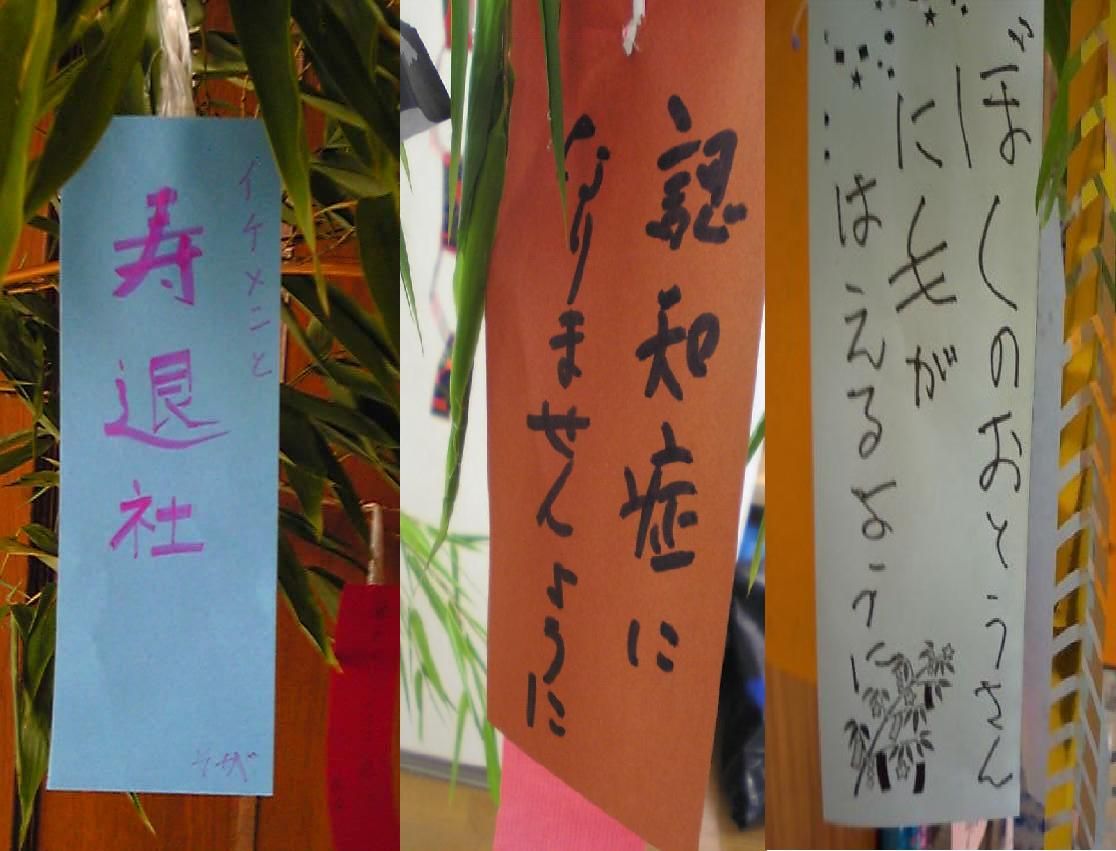 イケメンと
寿退社
認知症に
なりませんように
ぼくしのおとうさん
に毛が
はえるように